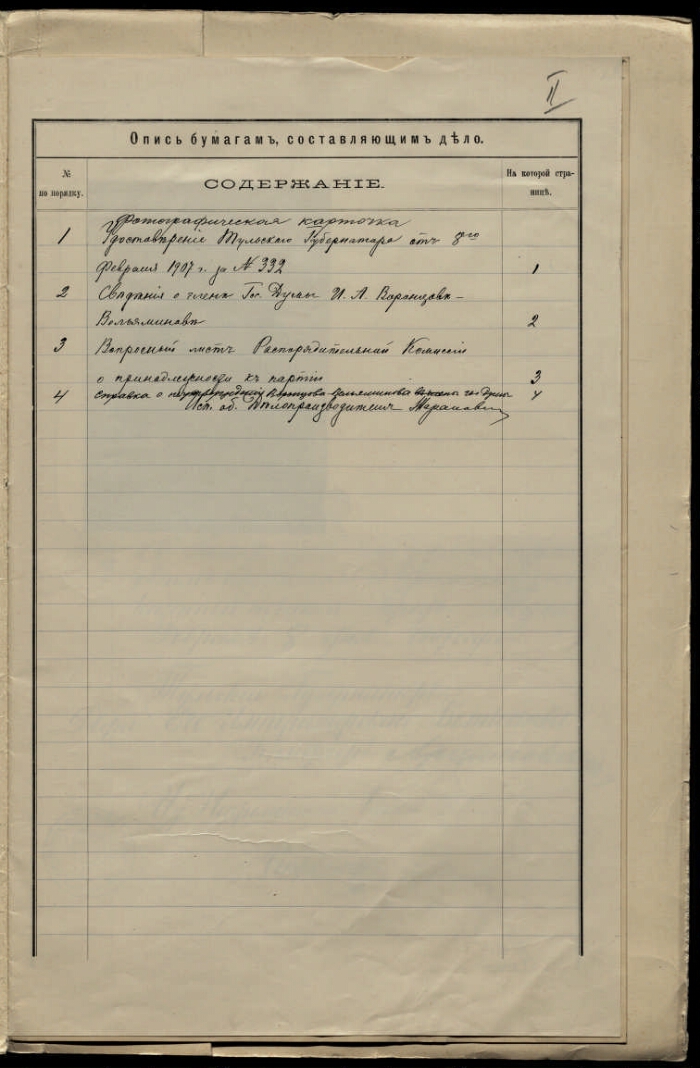 II
Опись бумагамъ, составляющимъ дѣло.
№ по порядку.
СОДЕРЖАНІЕ.
На которой страницѣ.
Фотографическая карточка
1 Удостовѣреніе Тульскаго Губернатора отъ 8го
Февраля 1907 г. за № 332 1
2 Свѣдѣнія о членѣ Гос. Думы И. А. Воронцовѣ-
Вельяминовѣ 2
3 Вопросный листъ Распорядительной Комиссіи
о принадлежности къ партіи 3
4 Справка о Воронцова Вельяминова Гос. Думы 4
Исп. об. Дѣлопроизводителя